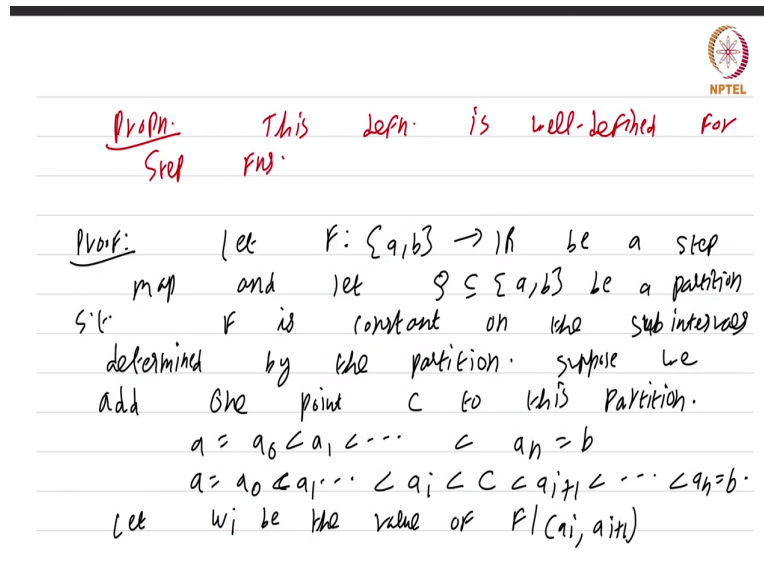 NPTEL
Propn. This defn. is well-defined for
Step Fns.
Proof: Let F: [a,b] → ℝ be a step
map and let P ⊆ [a,b] be a partition
s.t. F is constant on the subintervals
determined by the partition. Suppose we
add one point c to this partition.
a = a₀ < a₁ < ... < aₙ = b
a = a₀ < a₁ ... < aᵢ < c < aᵢ₊₁ < ... < aₙ = b.
Let wᵢ be the value of F|(aᵢ, aᵢ₊₁)